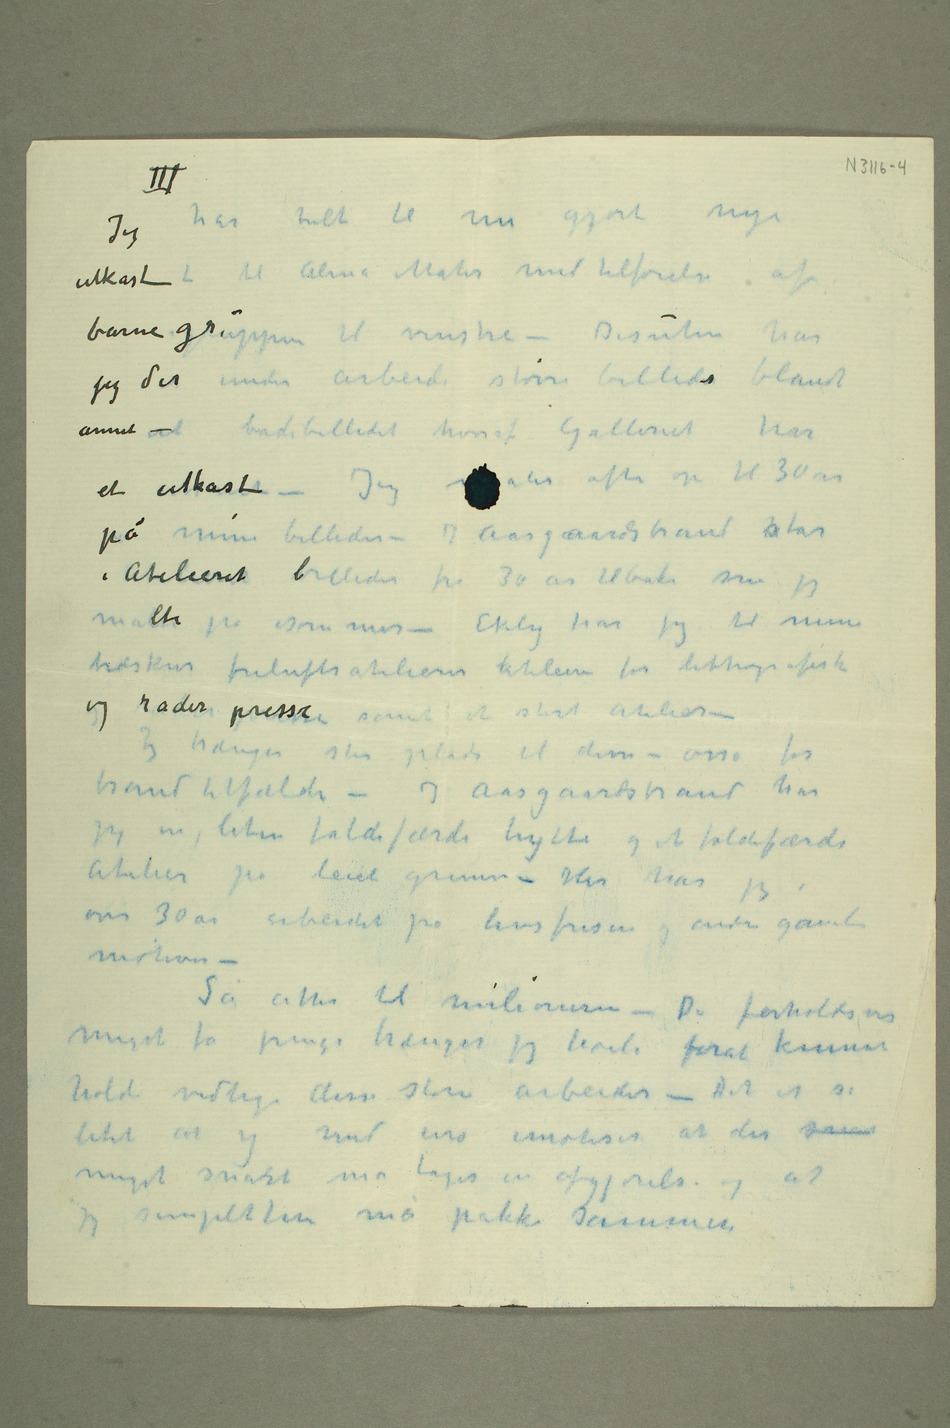 N 3116-4
III
Jeg har helt til nu gjort nye
utkast til Alma Mater med tilføielse af
barnegruppen til venstre – Desuten har
jeg der under arbeide større billeder blandt
annet – badebilledet hvoraf Galleriet har
et utkast – Jeg maler ofte op til 30 år
på mine billeder – I Aasgaardstrand står
i Atelieret billeder fra 30 år tilbake som jeg
malte på isommer – Ekely har jeg til mine
friluftsatelierer for lithografisk
og raderpresse samt et stort atelier –
Jeg trænger stor plads til dem – osså for
brandtilfælde – I Aasgaardstrand har
jeg en liten faldefærdi hytte og et faldefærdi
Atelier på leiet grunn – Her har jeg i
over 30 år arbeidet på livsfrisen og andre gamle
motiver –
Så atter til milionerne – De forholdsvis
meget få penge trænger jeg forat kunne
holde vedlige disse store arbeider – Det er så
litet at jeg med uro imøteser at der
meget snart må tages en afgjørelse og at
jeg simpelthen må pakke sammen